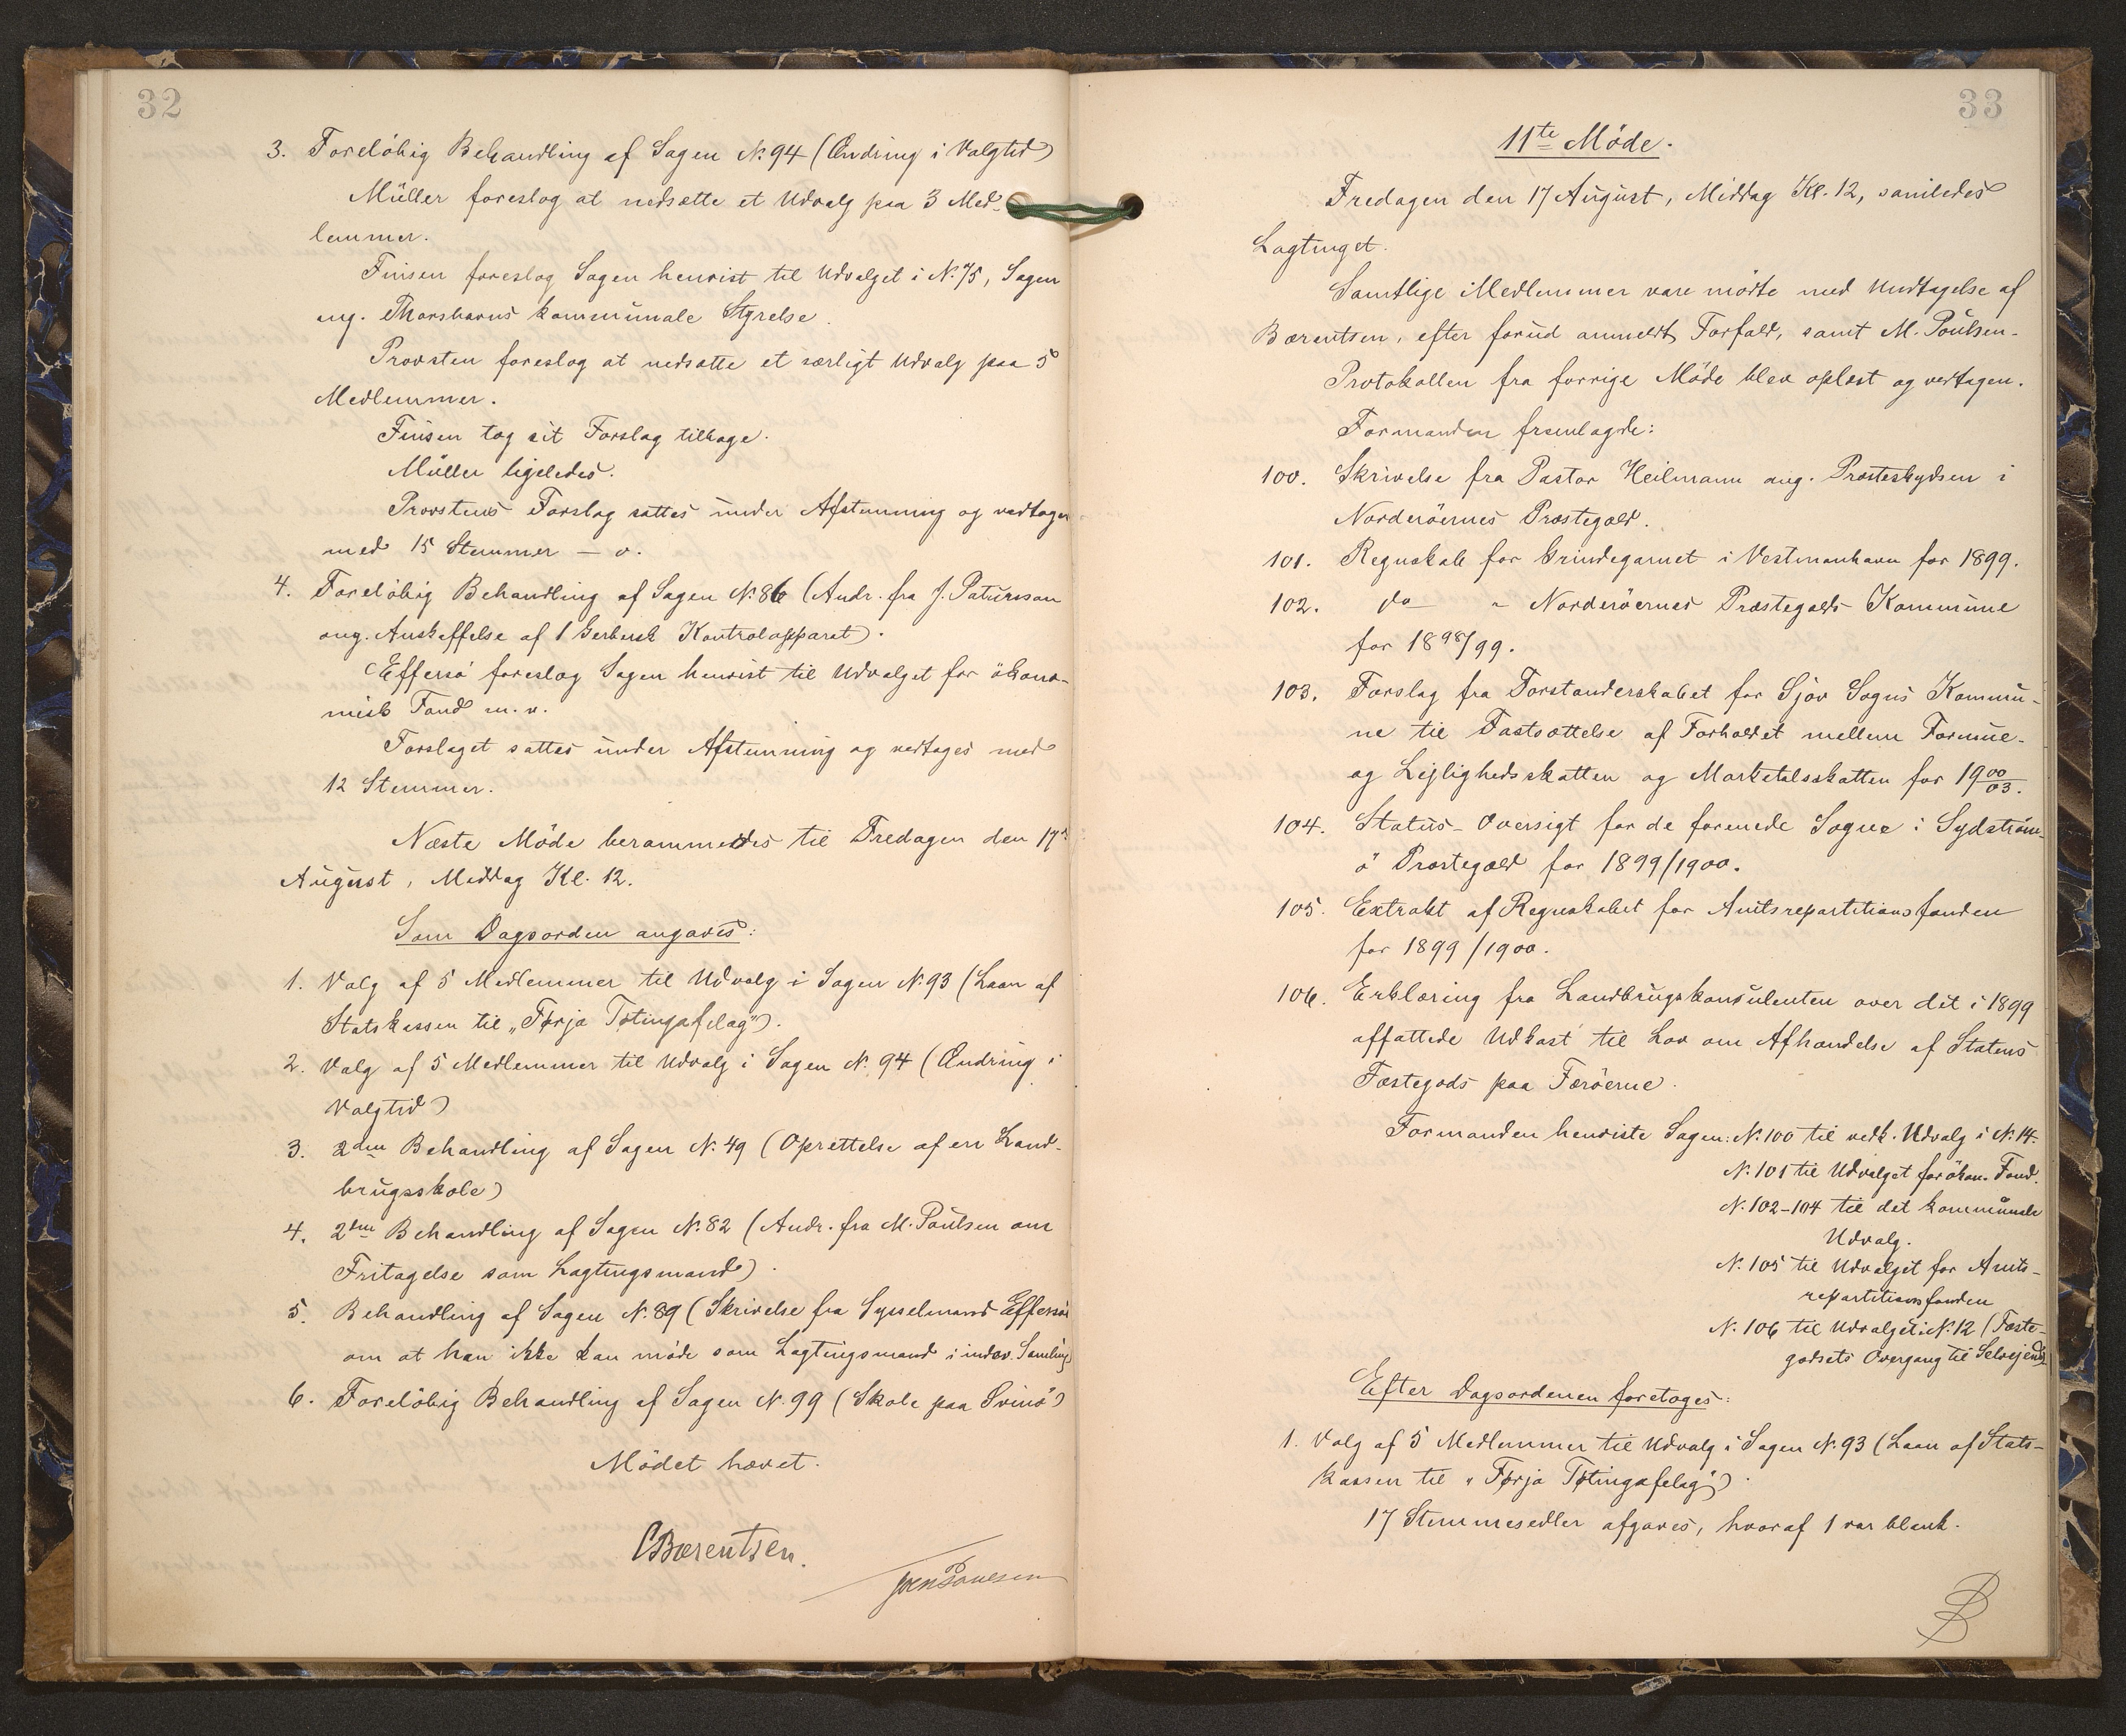 32
3. Foreløbig Behandling af Sagen N. 94 (Ændring i Valgtid)
Müller foreslog at nedsætte et Udvalg paa 3 Med-
lemmer.
Finsen foreslog Sagen henvist til Udvalget i N. 75, Sagen
ang. Thorshavns kommunale Styrelse.
Provsten foreslog at nedsætte et særligt Udvalg paa 5
Medlemmer.
Finsen tog sit Forslag tilbage.
Müller ligeledes.
Provstens Forslag sattes under Afstemning og vedtoges
med 15 Stemmer — o.
4. Foreløbig Behandling af Sagen N. 86 (Andr. fra J. Patursson
ang. Anskaffelse af 1 Gerbersk Kontrolapparat).
Effersø foreslog Sagen henvist til Udvalget for økono-
misk Fond m. v.
Forslaget sattes under Afstemning og vedtoges med
12 Stemmer.
Næste Møde berammedes til Fredagen den 17de
August, Middag Kl. 12.
Som Dagsorden angaves:
1. Valg af 5 Medlemmer til Udvalg i Sagen N. 93 (Laan af
Statskassen til „Førja Tøtingafelag").
2. Valg af 5 Medlemmer til Udvalg i Sagen N. 94 (Ændring i
Valgtid)
3. 2den Behandling af Sagen N. 49 (Oprettelse af en Land-
brugsskole)
4. 2den Behandling af Sagen N. 82 (Andr. fra M. Poulsen om
Fritagelse som Lagtingsmand).
5. Behandling af Sagen N. 89 (Skrivelse fra Sysselmand Effersøe
om at han ikke kan møde som Lagtingsmand i indev. Samling)
6. Foreløbig Behandling af Sagen N. 99 (Skole paa Svinø)
Mødet hævet.
CBærentsen.
Joen Poulsen
33
11te Møde.
Fredagen den 17 August, Middag Kl. 12, samledes
Lagtinget.
Samtlige Medlemmer vare mødte med Undtagelse af
Bærentsen, efter forud anmeldt Forfald, samt M. Poulsen.
Protokollen fra forrige Møde blev oplæst og vedtagen.
Formanden fremlagde:
100. Skrivelse fra Pastor Heilmann ang. Præsteskydsen i
Norderøernes Præstegæld.
101. Regnskab for Grindegarnet i Vestmanhavn for 1899.
102. do " Norderøernes Præstegælds Kommune
for 1898/99.
103. Forslag fra Forstanderskabet for Sjov Sogns Kommu-
ne til Fastsættelse af Forholdet mellem Formue-
og Lejlighedsskatten og Marketalsskatten for 1900/03.
104. Status-Oversigt for de forenede Sogne i Sydstrøm-
ø Præstegæld for 1899/1900.
105. Extrakt af Regnskabet for Amtsrepartitionsfonden
for 1899/1900.
106. Erklæring fra Landbrugskonsulenten over det i 1899
affattede Udkast til Lov om Afhændelse af Statens
Fæstegods paa Færøerne.
Formanden henviste Sagen: N. 100 til vedk. Udvalg i N. 14.
N. 101 til Udvalget for økon. Fond.
N. 102-104 til det kommunale
Udvalg.
N. 105 til Udvalget for Amts-
repartitionsfonden
N. 106 til Udvalget i N. 12 (Fæste-
godsets Overgang til Selvejend.
Efter Dagsordenen foretoges:
1. Valg af 5 Medlemmer til Udvalg i Sagen N. 93 (Laan af Stats-
kassen til „Førja Tøtingafelag").
17 Stemmesedler afgaves, hvoraf 1 var blank.